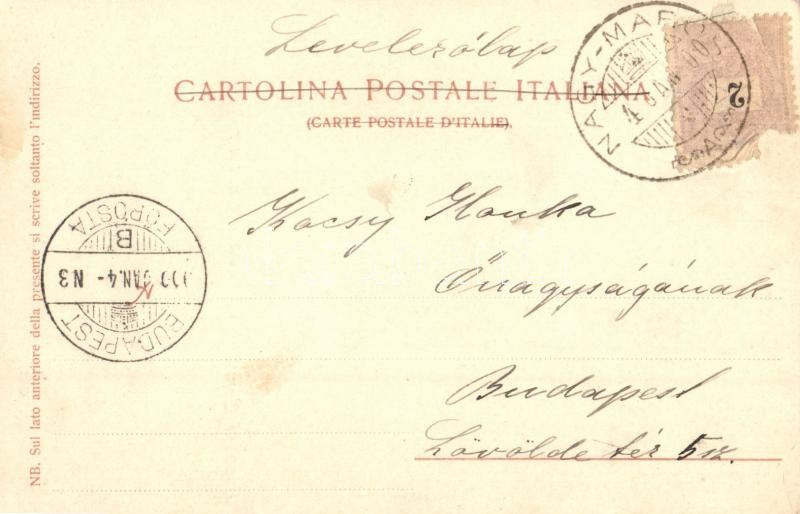 Levelezőlap
CARTOLINA POSTALE ITALIANA
(CARTE POSTALE D'ITALIE).
NAGY-MAROS
2
BUDAPEST
JAN. 4 - N3
B
FŐPOSTA
Kacsy Ilonka
Őnagyságának
Budapest
Lövölde tér 5 sz.
NB. Sul lato anteriore della presente si scrive soltanto l'indirizzo.